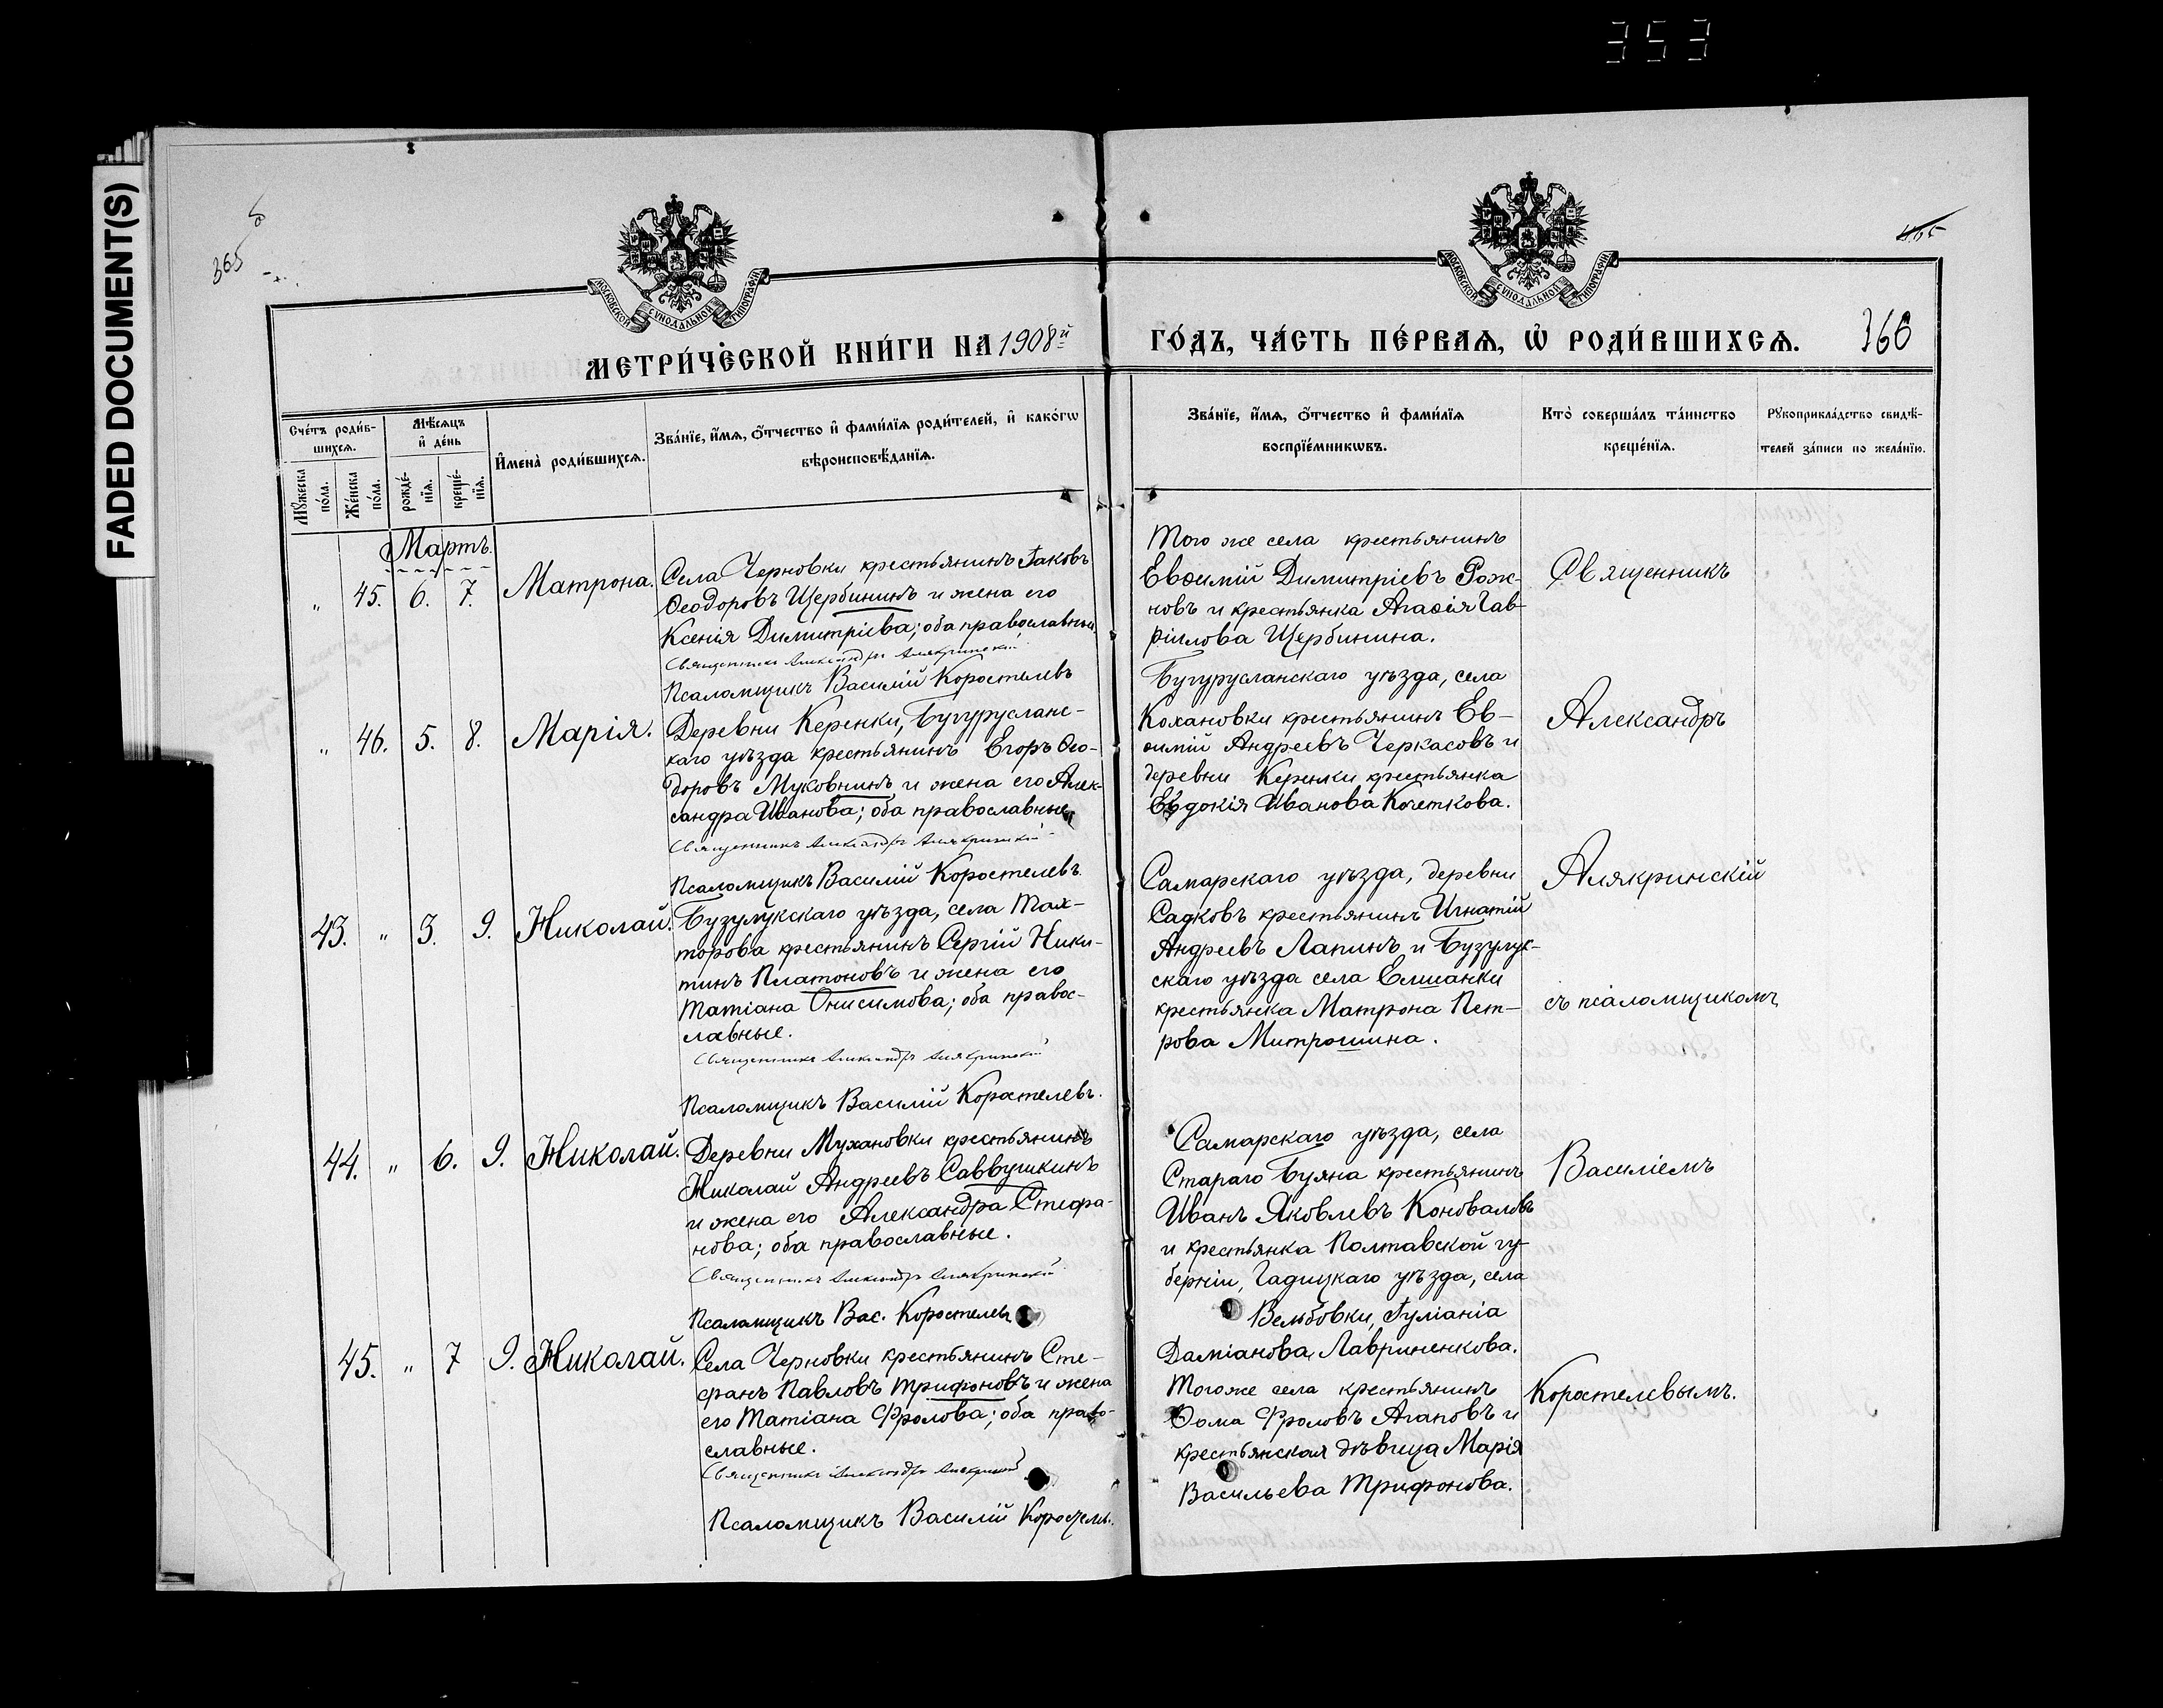 353
FADED DOCUMENT(S)
365
465
МОСКОВСКОЙ СѴНОДАЛЬНОЙ ТИПОГРАФІИ
МОСКОВСКОЙ СѴНОДАЛЬНОЙ ТИПОГРАФІИ
МЕТРИ́ЧЕСКОЙ КНИ́ГИ НА 1908й
ГО́ДЪ, ЧА́СТЬ ПЕ́РВАѦ, Ѡ҆ РОДИ́ВШИХСѦ.
366
Сче́тъ роди́в-
шихсѧ.
Мꙋ́жеска
по́ла.
Же́нска
по́ла.
Мѣ́сѧцъ
и҆ де́нь
рожде́-
нїѧ.
креще́-
нїѧ.
И҆мена̀ роди́вшихсѧ.
Зва́нїе, и҆́мѧ, ѻ҆́тчество и҆ фами́лїѧ роди́телей, и҆ како́гѡ
вѣроисповѣ́данїѧ.
Зва́нїе, и҆́мѧ, ѻ҆́тчество и҆ фами́лїѧ
воспрїе́мникѡвъ.
Кто̀ соверша́лъ та́инство
креще́нїѧ.
Рꙋкоприкла́дство свидѣ́-
телей за́писи по жела́нїю.
Мартъ.
„ 45. 6. 7. Матрона.
Села Черновки крестьянинъ Іаковъ
Ѳеодоровъ Щербининъ и жена его
Ксенія Димитріева; оба православные.
Священникъ Александръ Алякринскій
Псаломщикъ Василій Коростелевъ
Того же села крестьянинъ
Евѳимій Димитріевъ Рож-
новъ и крестьянка Агаѳія Гав-
ріилова Щербинина.
„ 46. 5. 8. Марія.
Деревни Керенки, Бугуруслан-
скаго уѣзда крестьянинъ Егоръ Ѳео-
доровъ Муковнинъ и жена его Алек-
сандра Иванова; оба православные
Священникъ Александръ Алякринскій
Псаломщикъ Василій Коростелевъ
Бугурусланскаго уѣзда, села
Кохановки крестьянинъ Ев-
ѳимій Андреевъ Черкасовъ и
деревни Керенки крестьянка
Евдокія Иванова Кочеткова.
43. „ 3. 9. Николай.
Бузулукскаго уѣзда, села Мах-
торова крестьянинъ Сергій Ники-
тинъ Платоновъ и жена его
Татіана Онисимова; оба правос-
лавные.
Священникъ Александръ Алякринскій
Псаломщикъ Василій Коростелевъ.
Самарскаго уѣзда, деревни
Садковъ крестьянинъ Игнатій
Андреевъ Лапинъ и Бузулук-
скаго уѣзда села Елшанки
крестьянка Матрона Пет-
рова Митрошина.
44. „ 6. 9. Николай.
Деревни Мухановки крестьянинъ
Николай Андреевъ Саввушкинъ
и жена его Александра Стефа-
нова; оба православные.
Священникъ Александръ Алякринскій
Псаломщикъ Вас. Коростелевъ
Самарскаго уѣзда, села
Стараго Буяна крестьянинъ
Иванъ Яковлевъ Коноваловъ
и крестьянка Полтавской гу-
берніи, Гадяцкаго уѣзда, села
Вельбовки, Іуліанія
Даміанова Лавриненкова.
45. „ 7 9. Николай.
Села Черновки крестьянинъ Сте-
фанъ Павловъ Трифоновъ и жена
его Татіана Фролова; оба право-
славные.
Священникъ Александръ Алякринскій
Псаломщикъ Василій Коростелевъ.
Того же села крестьянинъ
Ѳома Фроловъ Агаповъ и
крестьянская дѣвица Марія
Васильева Трифонова.
Священникъ
Александръ
Алякринскій
съ псаломщикомъ
Василіемъ
Коростелевымъ.